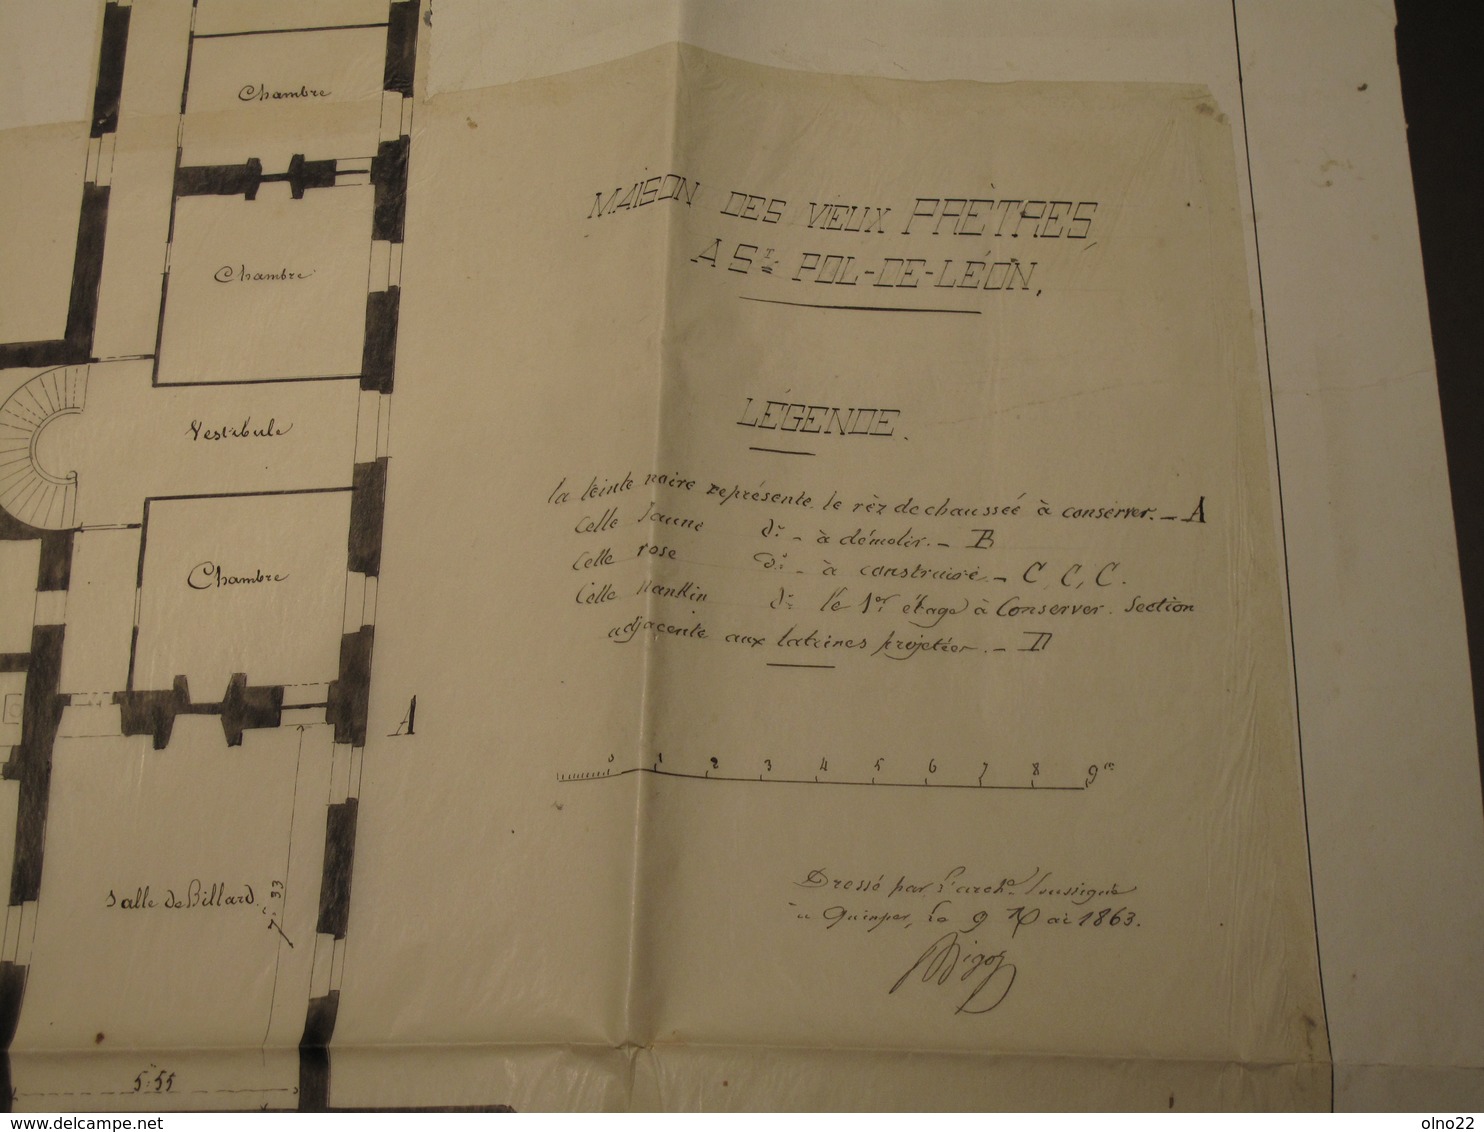 Chambre
Chambre
Vestibule
Chambre
A
Salle de Billard.
7.33
5.55
MAISON DES VIEUX PRÊTRES,
A St POL-DE-LÉON.
LÉGENDE.
la teinte noire représente le rèz de chausséé à conserver. — A
Celle Jaune do — à démolir. — B
Celle rose do — à construire — C, C, C.
Celle Nankin do le 1er étage à Conserver. Section
adjacente aux latrines projetées. — D
0 1 2 3 4 5 6 7 8 9 m
Dressé par l'archte Soussigné
à Quimper, le 9 Mai 1863.
Bigot
olno22